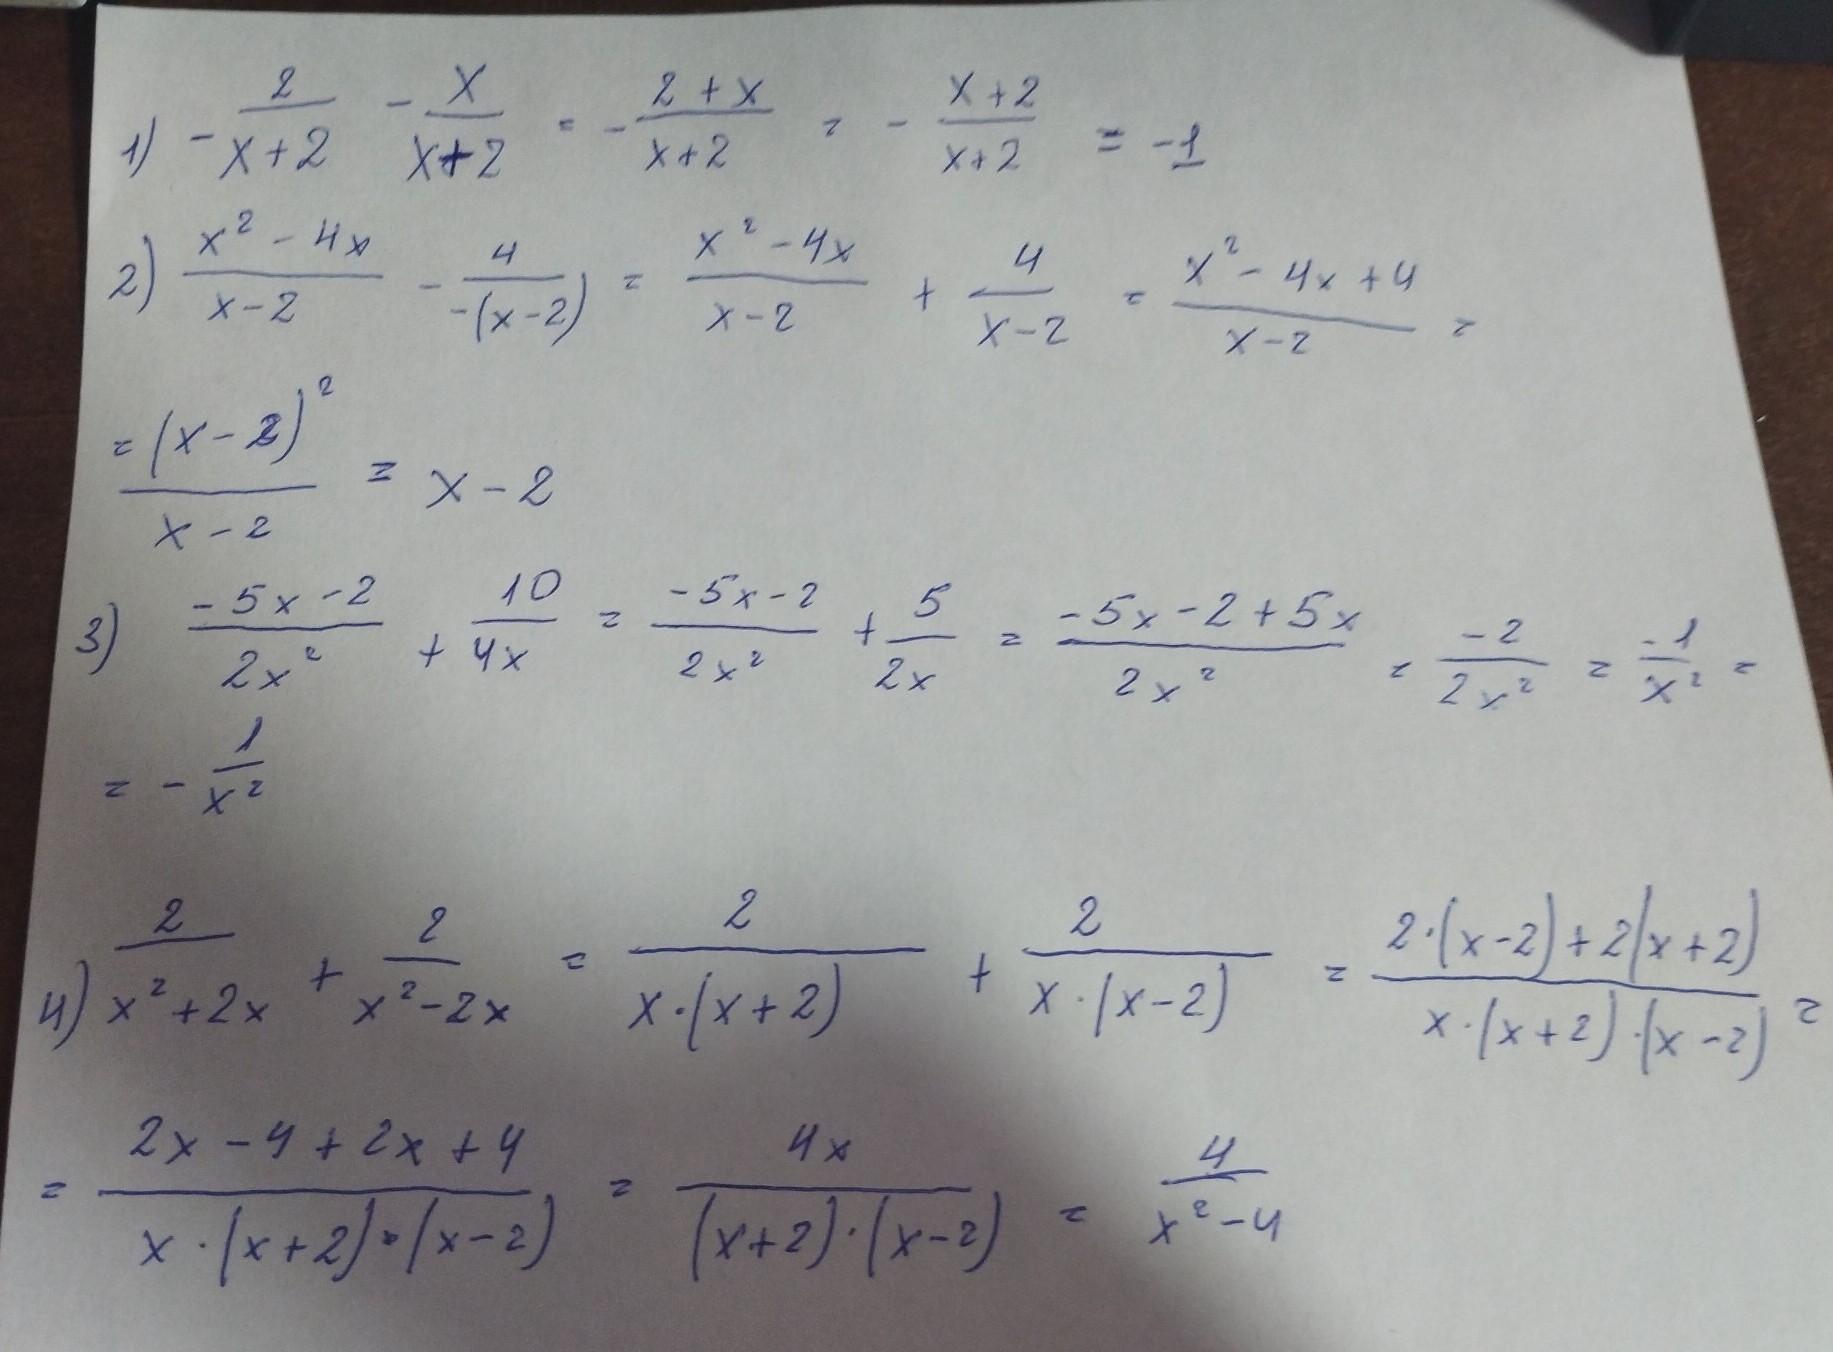 1) -2/(x+2) - x/(x+2) = -(2+x)/(x+2) = -(x+2)/(x+2) = -1
2) (x² - 4x)/(x-2) - 4/(-(x-2)) = (x² - 4x)/(x-2) + 4/(x-2) = (x² - 4x + 4)/(x-2) =
= (x-2)²/(x-2) = x - 2
3) (-5x-2)/(2x²) + 10/(4x) = (-5x-2)/(2x²) + 5/(2x) = (-5x-2+5x)/(2x²) = -2/(2x²) = -1/x² =
= -1/x²
4) 2/(x²+2x) + 2/(x²-2x) = 2/(x·(x+2)) + 2/(x·(x-2)) = (2·(x-2)+2(x+2))/(x·(x+2)·(x-2)) =
= (2x-4+2x+4)/(x·(x+2)·(x-2)) = 4x/((x+2)·(x-2)) = 4/(x²-4)